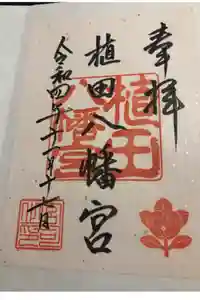 奉拝
植田八幡宮
令和四年十二月十七日
植田
八幡宮